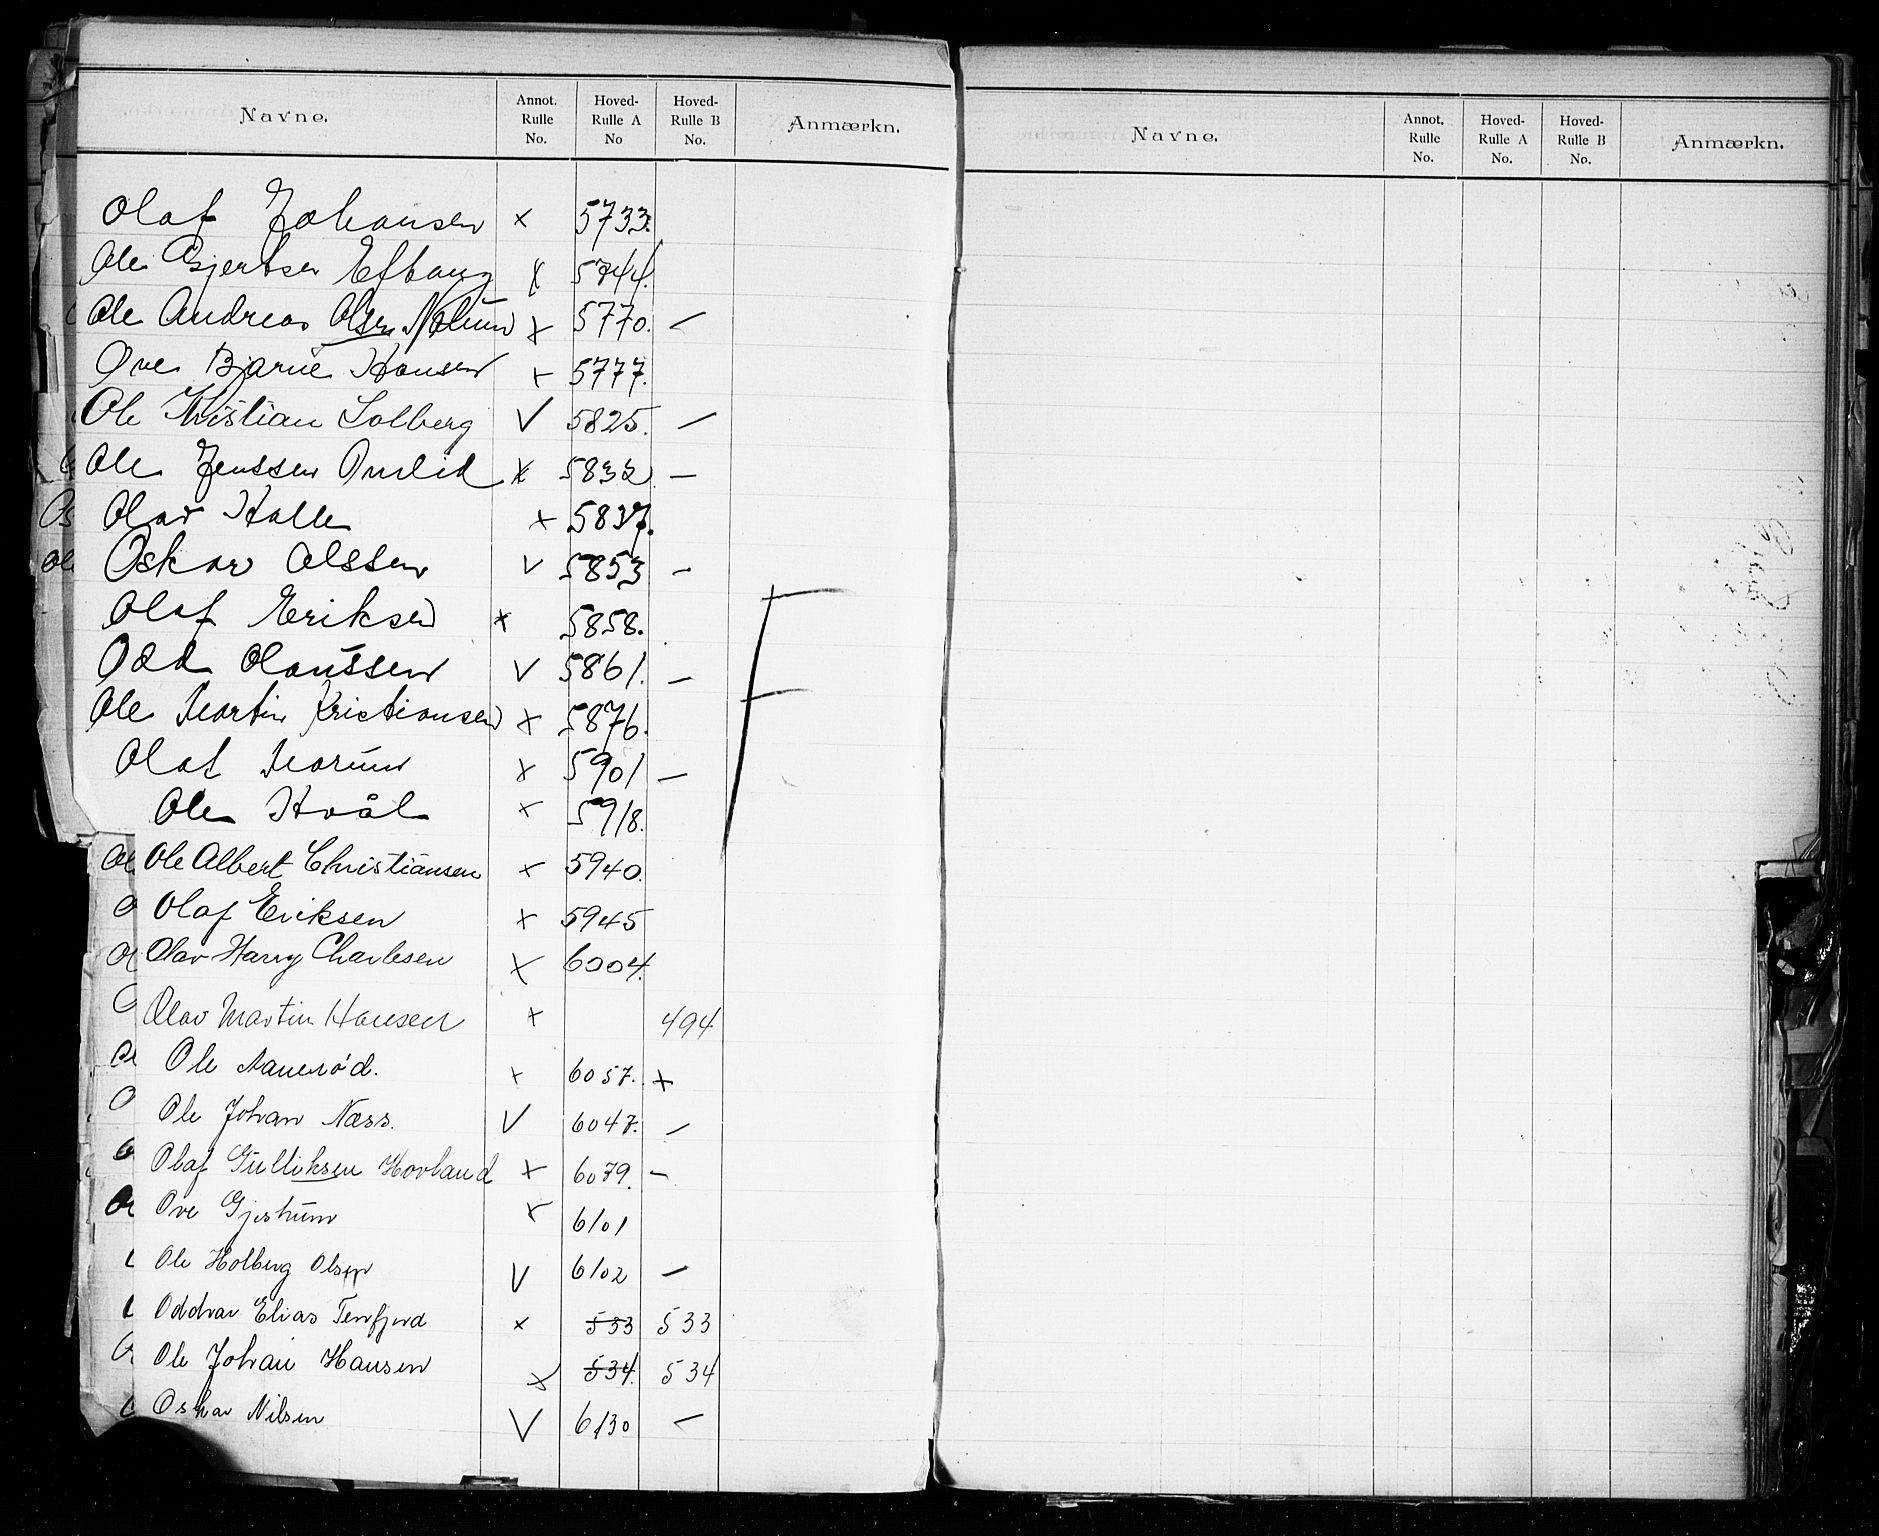 Navne. Annot. Rulle No. Hoved-Rulle A No Hoved-Rulle B No. Anmærkn.
Olaf Johansen x 5733.
Ole Gjertsen Eftang x 5744.
Ole Andreas Olsen Nalum x 5770. –
Ove Bjarne Hansen x 5777.
Ole Kristian Solberg V 5825. –
Ole Jenssen Omlid x 5832. –
Olav Halle x 5837.
Oskar Olssen V 5853 –
Olaf Eriksen x 5858.
Odd Olaussen V 5861. –
Ole Martin Kristiansen x 5876.
Olaf Marum x 5901 –
Ole Hvål x 5918.
Ole Albert Christiansen x 5940.
Olaf Eriksen x 5945
Olav Harry Charlesen x 6004.
Olav Martin Hansen x 494
Ole Aanerød. x 6057. x
Ole Johan Næss. V 6047. –
Olaf Gulliksen Hovland x 6079. –
Ove Gjertum x 6101
Ole Holberg Olsen V 6102 –
Oddvar Elias Terrfjord x 533 533
Ole Johan Hansen x 534. 534
Oskar Nilsen V 6130 –
F
Navne. Annot. Rulle No. Hoved-Rulle A No. Hoved-Rulle B No. Anmærkn.